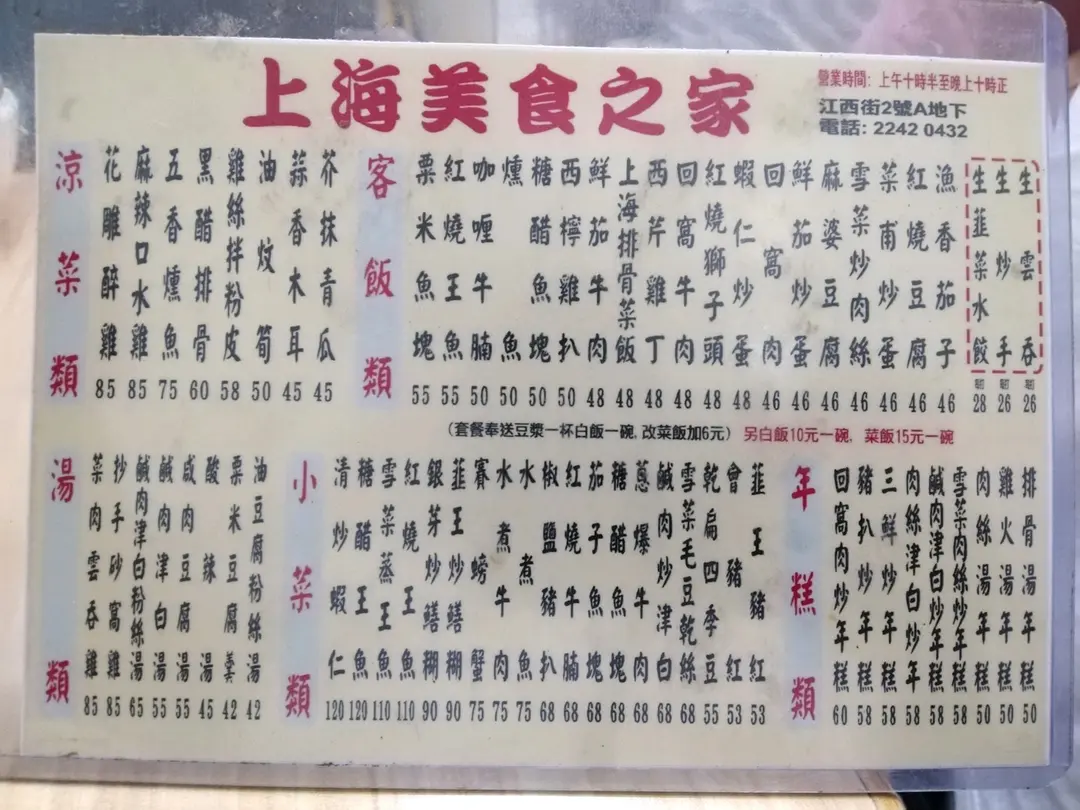 上海美食之家
營業時間: 上午十時半至晚上十時正
江西街2號A地下
電話: 2242 0432
涼菜類
花雕醉雞 85
麻辣口水雞 85
五香燻魚 75
黑醋排骨 60
雞絲拌粉皮 58
油炆筍 50
蒜香木耳 45
芥抹青瓜 45
客飯類
粟米魚塊 55
紅燒王魚 55
咖喱牛腩 50
燻魚 50
糖醋魚塊 50
西檸雞扒 50
鮮茄牛肉 48
上海排骨菜飯 48
西芹雞丁 48
回窩牛肉 48
紅燒獅子頭 48
蝦仁炒蛋 48
回窩肉 46
鮮茄炒蛋 46
麻婆豆腐 46
雪菜炒肉絲 46
菜甫炒蛋 46
紅燒豆腐 46
漁香茄子 46
生韮菜水餃 28
生炒手 26
生雲吞 26
(套餐奉送豆漿一杯白飯一碗, 改菜飯加6元) 另白飯10元一碗, 菜飯15元一碗
湯類
菜肉雲吞雞 85
抄手砂窩雞 85
鹹肉津白粉絲湯 65
鹹肉津白湯 55
咸肉豆腐湯 55
酸辣湯 45
粟米豆腐羹 42
油豆腐粉絲湯 42
小菜類
清炒蝦仁 120
糖醋王魚 120
雪菜蒸王魚 110
紅燒王魚 110
銀芽炒鱔糊 90
韮王炒鱔糊 90
賽螃蟹 75
水煮牛肉 75
水煮魚 75
椒鹽豬扒 68
紅燒牛腩 68
茄子魚塊 68
糖醋魚塊 68
蔥爆牛肉 68
鹹肉炒津白 68
雪菜毛豆乾絲 68
乾扁四季豆 55
會豬紅 53
韮王豬紅 53
年糕類
回窩肉炒年糕 60
豬扒炒年糕 58
三鮮炒年糕 58
肉絲津白炒年 58
鹹肉津白炒年糕 58
雪菜肉絲炒年糕 58
肉絲湯年糕 50
雞火湯年糕 50
排骨湯年糕 50